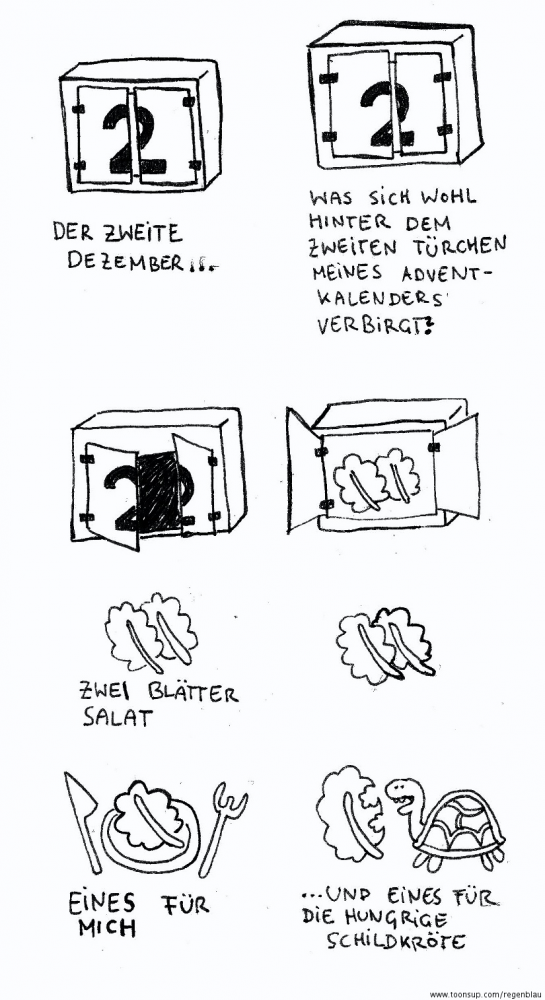 2
DER ZWEITE
DEZEMBER...
2
WAS SICH WOHL
HINTER DEM
ZWEITEN TÜRCHEN
MEINES ADVENT-
KALENDERS
VERBIRGT?
2
ZWEI BLÄTTER
SALAT
EINES FÜR
MICH
...UND EINES FÜR
DIE HUNGRIGE
SCHILDKRÖTE
www.toonsup.com/regenblau